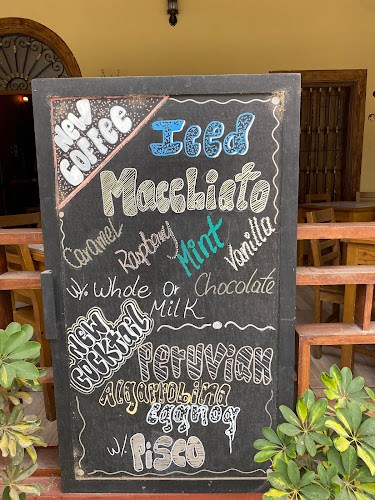 New
Coffee
Iced
Macchiato
Caramel Raspberry Mint Vanilla
W/ Whole or Chocolate
Milk
New
Cocktail
Peruvian
Algarrobina
Eggnog
W/ Pisco